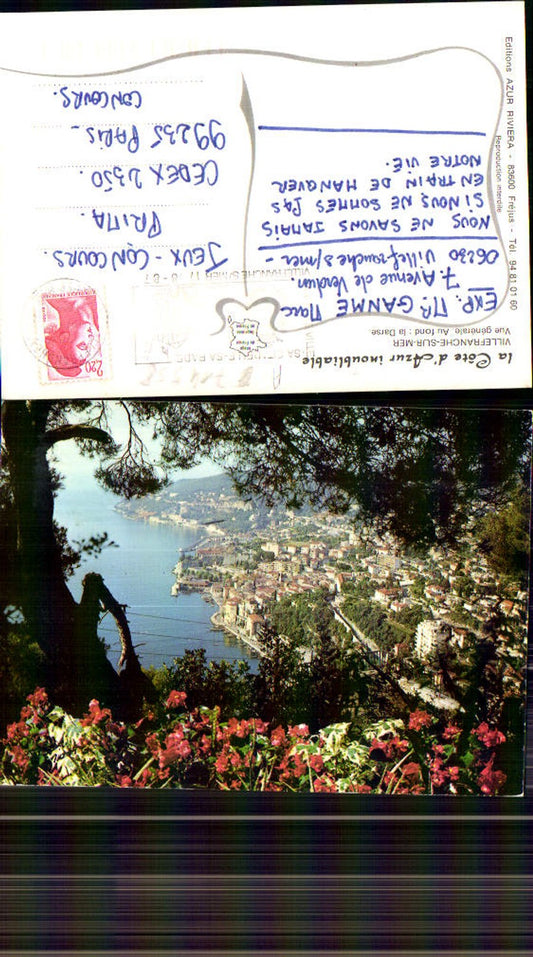 la Côte d'Azur inoubliable
VILLEFRANCHE-SUR-MER
Vue générale. Au fond : la Darse
EXP. Mr. GANME Marc
7. Avenue de Verdun.
06230 Villefranche s/mer -
NOUS NE SAVONS JAMAIS
SI NOUS NE SOMMES PAS
EN TRAIN DE MANQUER
NOTRE VIE.
Editions AZUR RIVIERA - 83600 Fréjus - Tél. 94 81 01 60
Reproduction interdite
VILLEFRANCHE S/MER 17-8-87
2,20
JEUX - CONCOURS.
PRIMA.
CEDEX 2350.
99235 PARIS -
CONCOURS.